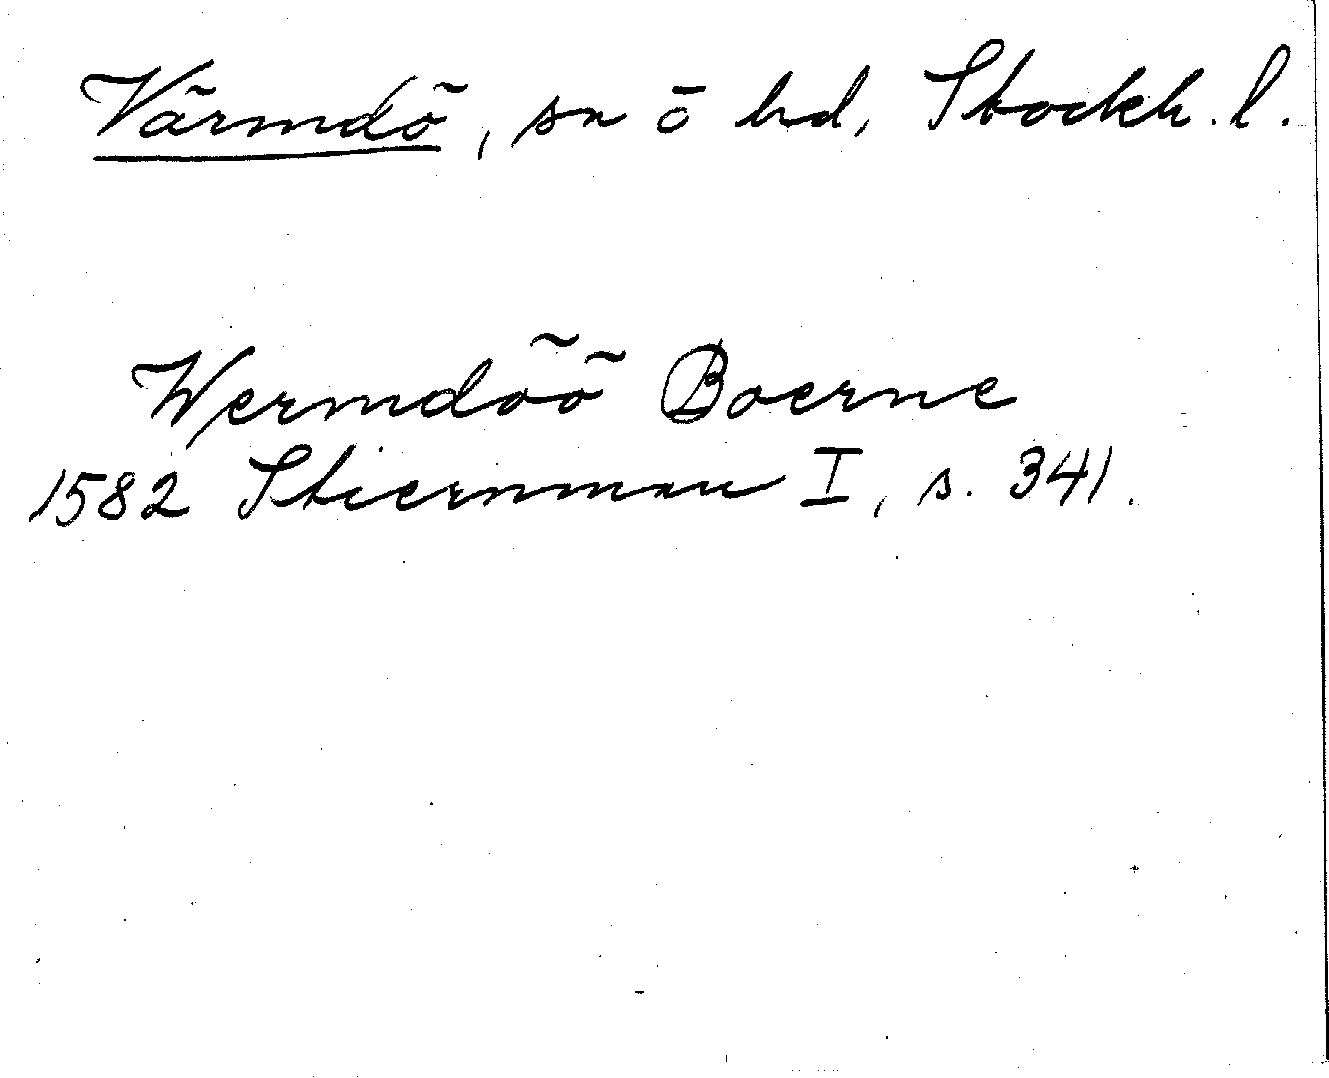 Värmdö, sn o hd, Stockh. l.
Wermdöö Boerne
1582 Stiernman I, s. 341.